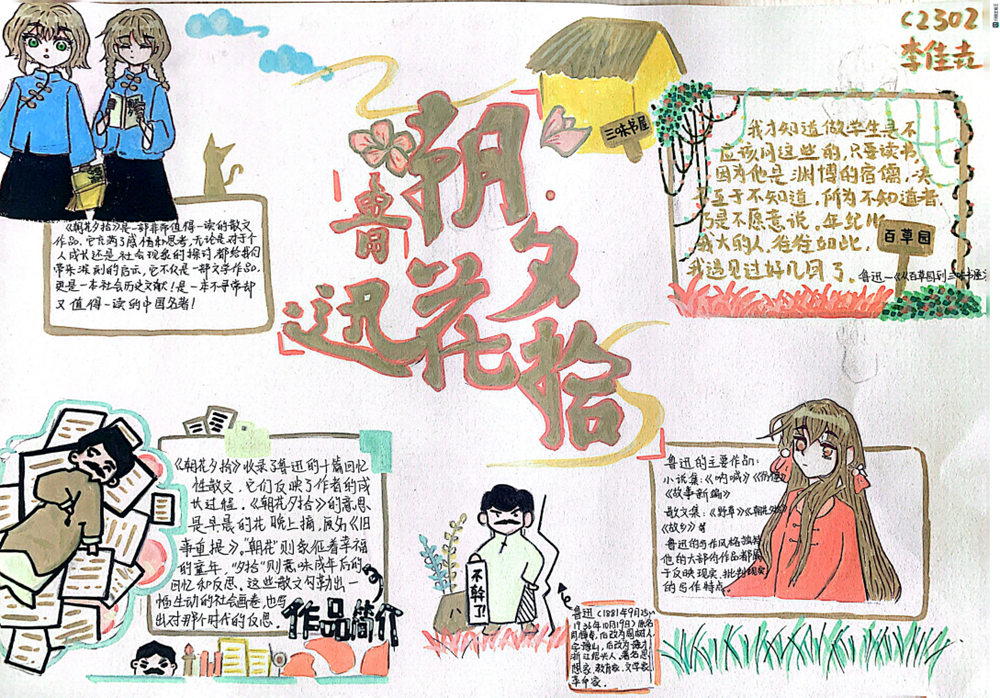 C2302
李佳垚
朝花夕拾
鲁迅
三味书屋
《朝花夕拾》是一部非常值得一读的散文
作品。它充满了感情和思考,无论是对于个
人成长还是社会现象的探讨都给我们
带来深刻的启示,它不仅是一部文学作品,
更是一本社会历史文献!是一本不寻常却
又值得一读的中国名著!
我才知道做学生是不
应该问这些的,只要读书,
因为他是渊博的宿儒,决
至于不知道,所为不知道者,
乃是不愿意说。年纪比
我大的人,往往如此,
我遇见过好几回了。
鲁迅—《从百草园到三味书屋》
百草园
《朝花夕拾》收录了鲁迅的十篇回忆
性散文,它们反映了作者的成
长过程。《朝花夕拾》的意思
是早晨的花晚上摘,原名《旧
事重提》,"朝花"则象征着幸福
的童年,"夕拾"则意味成年后的
回忆和反思,这些散文勾勒出一
幅生动的社会画卷,也写
出对那个时代的反思。
作品简介
不幹了!
鲁迅(1881年9月25—
1936年10月19日)原名
周樟寿,后改为周树人,
字豫山,后改为豫才,
浙江绍兴人,著名思
想家,教育家,文学家,
革命家。
鲁迅的主要作品:
小说集:《呐喊》《彷徨》
《故事新编》
散文集:《野草》《朝花夕拾》
《故乡》等
鲁迅的写作风格独特
他的大部份作品都属
于反映现实,批判现实
的写作特点。